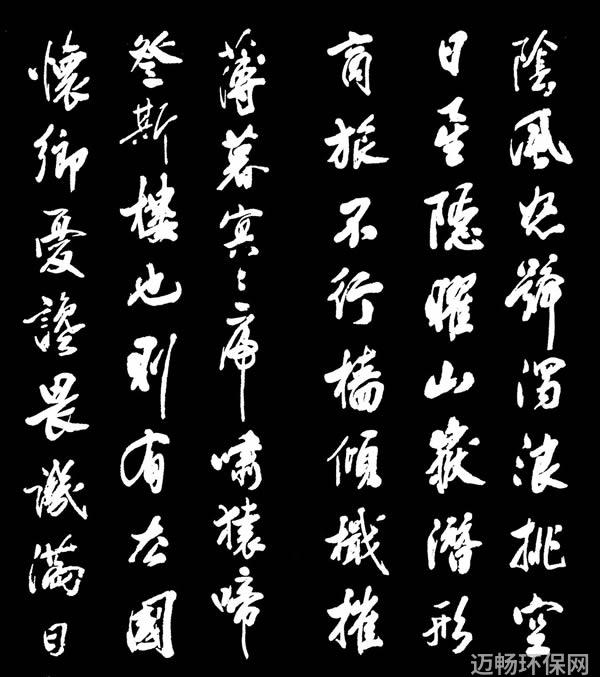 陰風怒號濁浪排空
日星隱曜山嶽潛形
商旅不行檣傾檝摧
薄暮冥〻虎嘯猿啼
登斯樓也則有去國
懷鄉憂讒畏譏滿目
迈畅环保网